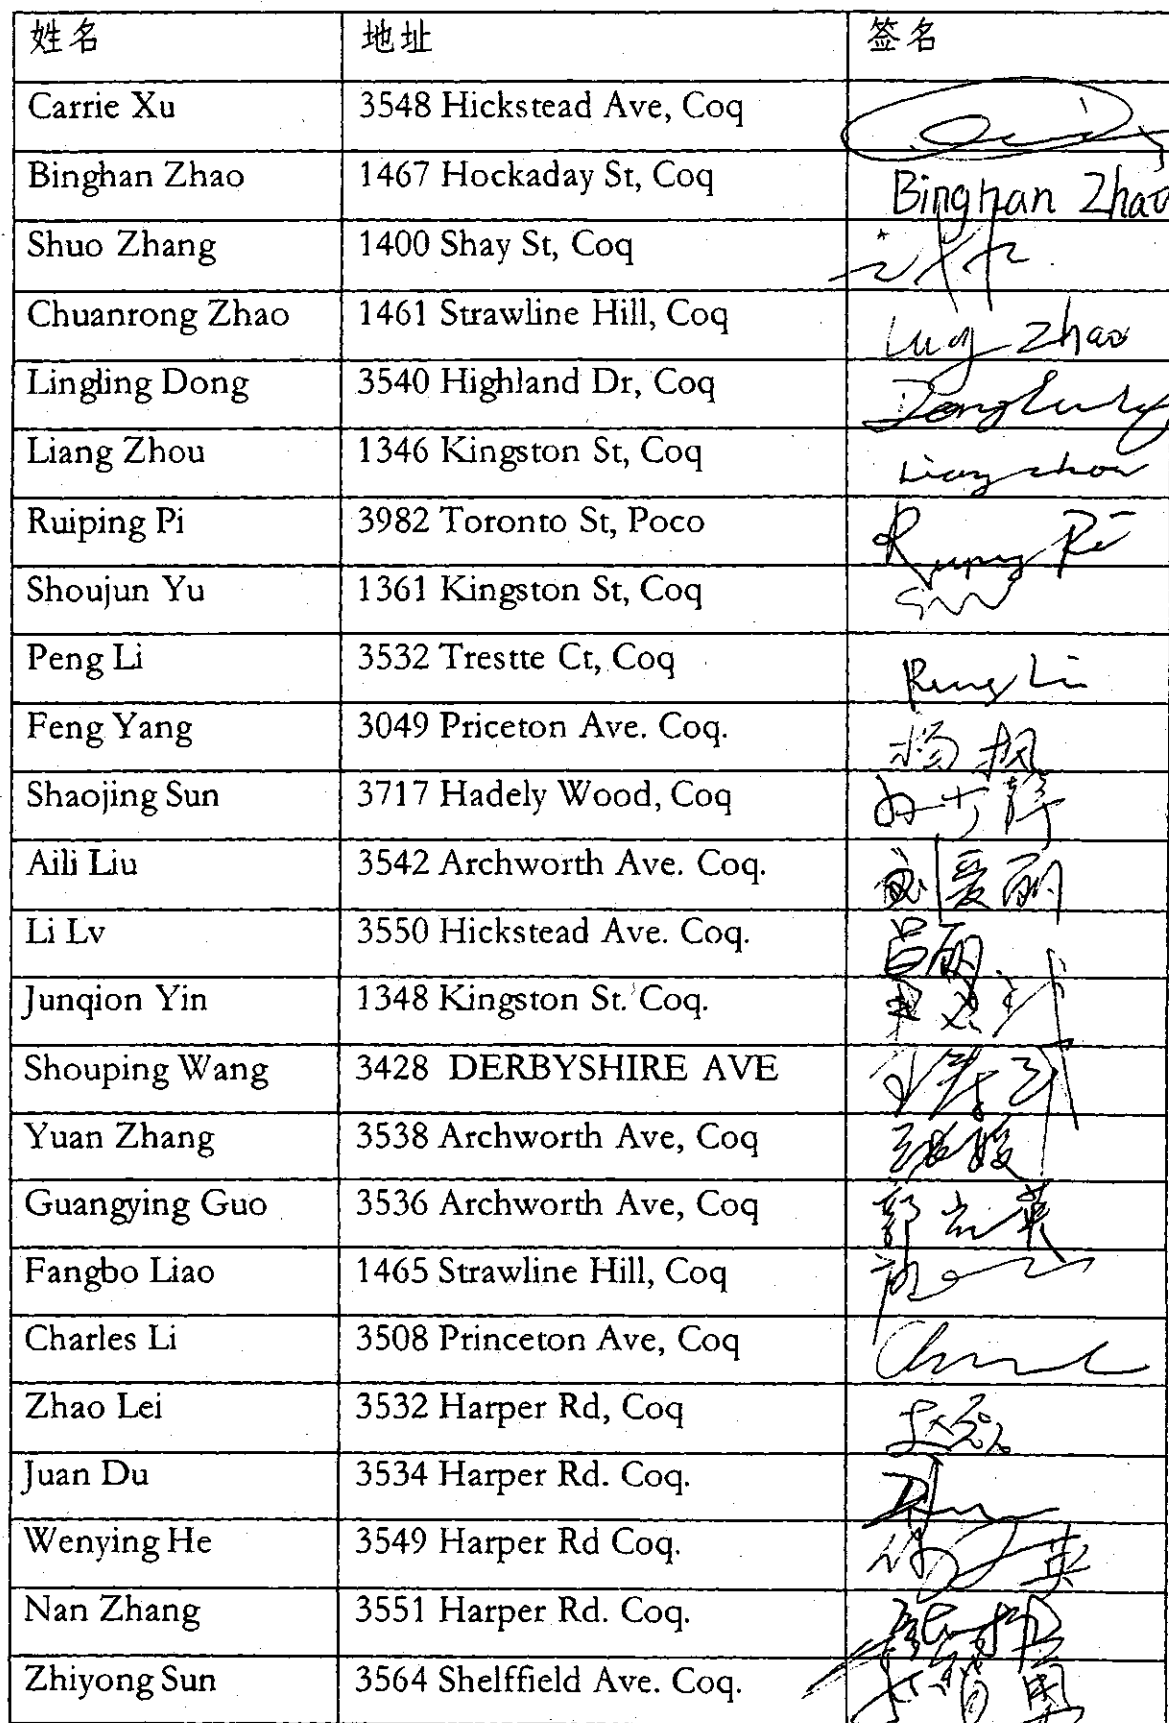 姓名 地址 签名
Carrie Xu 3548 Hickstead Ave, Coq
Binghan Zhao 1467 Hockaday St, Coq Binghan Zhao
Shuo Zhang 1400 Shay St, Coq
Chuanrong Zhao 1461 Strawline Hill, Coq Lucy Zhao
Lingling Dong 3540 Highland Dr, Coq
Liang Zhou 1346 Kingston St, Coq Liang Zhou
Ruiping Pi 3982 Toronto St, Poco Ruiping Pi
Shoujun Yu 1361 Kingston St, Coq
Peng Li 3532 Trestte Ct, Coq Peng Li
Feng Yang 3049 Priceton Ave. Coq. 杨枫
Shaojing Sun 3717 Hadely Wood, Coq
Aili Liu 3542 Archworth Ave. Coq. 刘爱丽
Li Lv 3550 Hickstead Ave. Coq. 吕丽
Junqion Yin 1348 Kingston St. Coq.
Shouping Wang 3428 DERBYSHIRE AVE
Yuan Zhang 3538 Archworth Ave, Coq
Guangying Guo 3536 Archworth Ave, Coq 郭光英
Fangbo Liao 1465 Strawline Hill, Coq
Charles Li 3508 Princeton Ave, Coq
Zhao Lei 3532 Harper Rd, Coq
Juan Du 3534 Harper Rd. Coq.
Wenying He 3549 Harper Rd Coq.
Nan Zhang 3551 Harper Rd. Coq.
Zhiyong Sun 3564 Shelffield Ave. Coq.